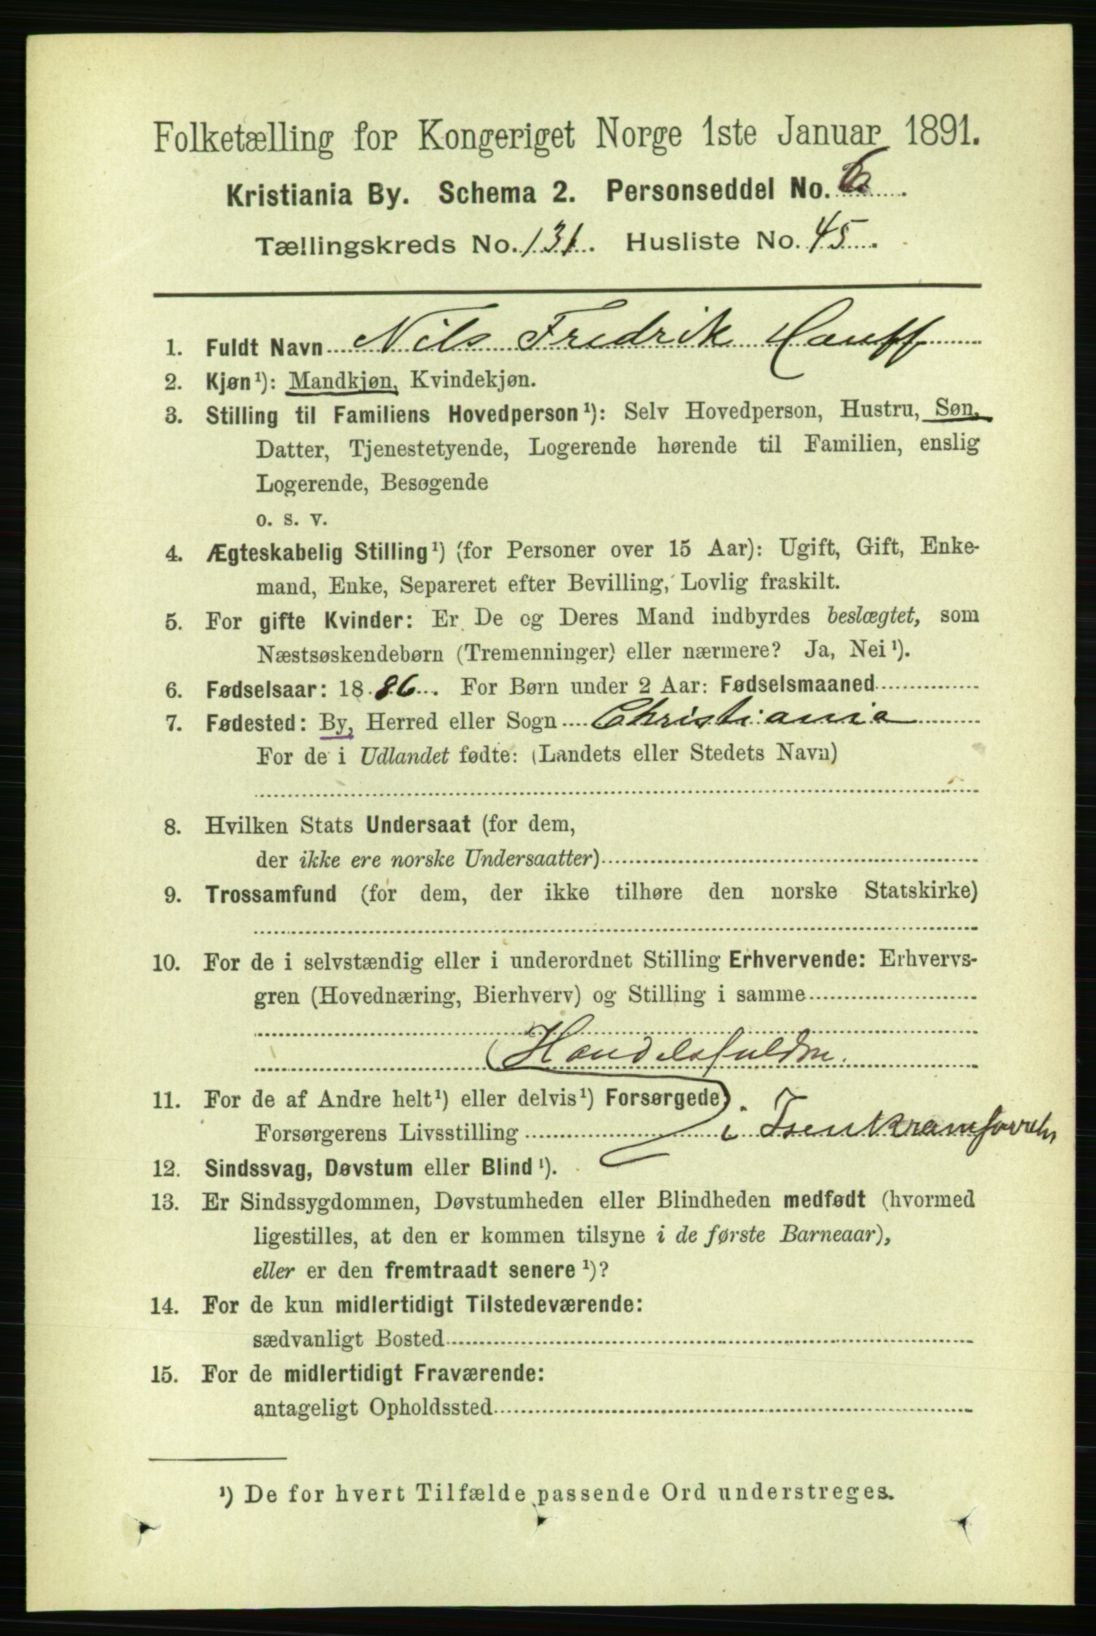 Folketælling for Kongeriget Norge 1ste Januar 1891.
Kristiania By. Schema 2. Personseddel No. 6.
Tællingskreds No. 131. Husliste No. 45.
1. Fuldt Navn Nils Fredrik Hauff
2. Kjøn¹): Mandkjøn, Kvindekjøn.
3. Stilling til Familiens Hovedperson¹): Selv Hovedperson, Hustru, Søn,
Datter, Tjenestetyende, Logerende hørende til Familien, enslig
Logerende, Besøgende
o. s. v.
4. Ægteskabelig Stilling¹) (for Personer over 15 Aar): Ugift, Gift, Enke-
mand, Enke, Separeret efter Bevilling, Lovlig fraskilt.
5. For gifte Kvinder: Er De og Deres Mand indbyrdes beslægtet, som
Næstsøskendebørn (Tremenninger) eller nærmere? Ja, Nei¹).
6. Fødselsaar: 1886. For Børn under 2 Aar: Fødselsmaaned
7. Fødested: By, Herred eller Sogn Christiania
For de i Udlandet fødte: (Landets eller Stedets Navn)
8. Hvilken Stats Undersaat (for dem,
der ikke ere norske Undersaatter)
9. Trossamfund (for dem, der ikke tilhøre den norske Statskirke)
10. For de i selvstændig eller i underordnet Stilling Erhvervende: Erhvervs-
gren (Hovednæring, Bierhverv) og Stilling i samme
(Handelsfuldm.
11. For de af Andre helt¹) eller delvis¹) Forsørgede,
Forsørgerens Livsstilling i
12. Sindssvag, Døvstum eller Blind¹).
13. Er Sindssygdommen, Døvstumheden eller Blindheden medfødt (hvormed
ligestilles, at den er kommen tilsyne i de første Barneaar),
eller er den fremtraadt senere¹)?
14. For de kun midlertidigt Tilstedeværende:
sædvanligt Bosted
15. For de midlertidigt Fraværende:
antageligt Opholdssted
¹) De for hvert Tilfælde passende Ord understreges.